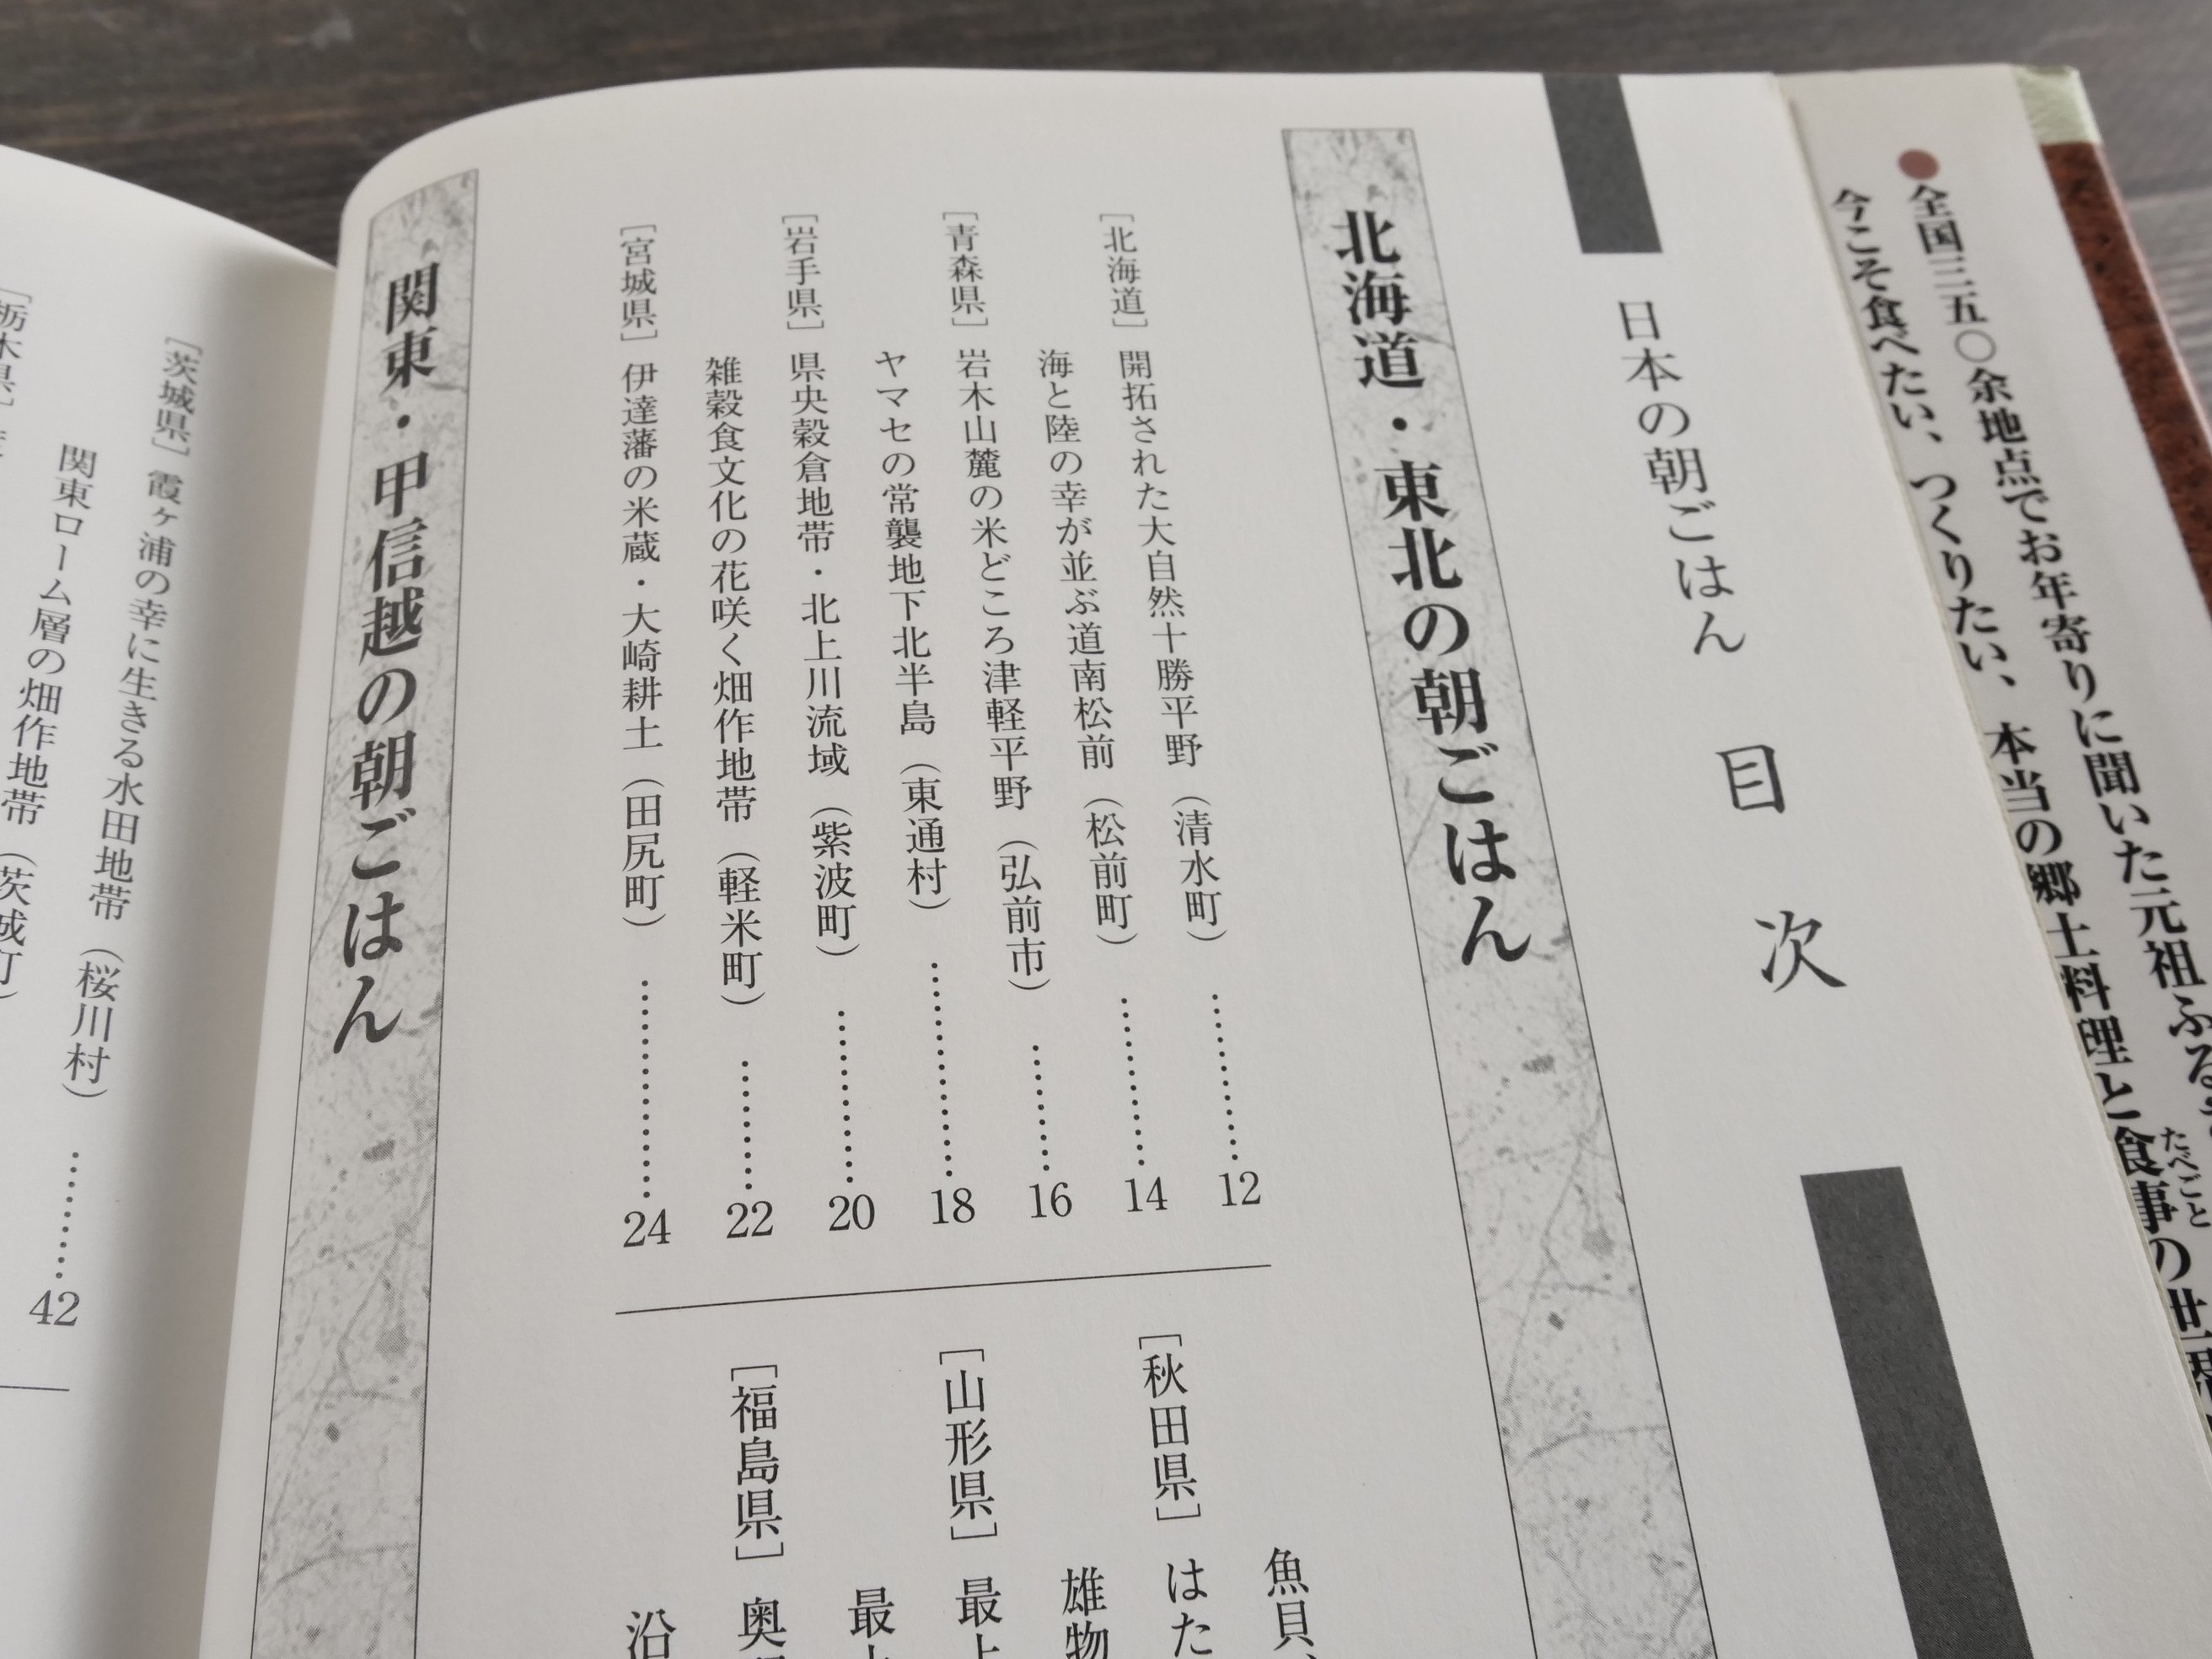 ●全国三五〇余地点でお年寄りに聞いた元祖ふる
今こそ食べたい、つくりたい、本当の郷土料理と食事の世
たべごと
日本の朝ごはん 目次
北海道・東北の朝ごはん
［北海道］ 開拓された大自然十勝平野（清水町）…………12
海と陸の幸が並ぶ道南松前（松前町）…………14
［青森県］ 岩木山麓の米どころ津軽平野（弘前市）…………16
ヤマセの常襲地下北半島（東通村）…………18
［岩手県］ 県央穀倉地帯・北上川流域（紫波町）…………20
雑穀食文化の花咲く畑作地帯（軽米町）…………22
［宮城県］ 伊達藩の米蔵・大崎耕土（田尻町）…………24
魚貝、
［秋田県］ はた
雄物
［山形県］ 最上
最上
［福島県］ 奥
沿
関東・甲信越の朝ごはん
［茨城県］ 霞ヶ浦の幸に生きる水田地帯（桜川村）…………42
関東ローム層の畑作地帯（茨城町）
［栃木県］